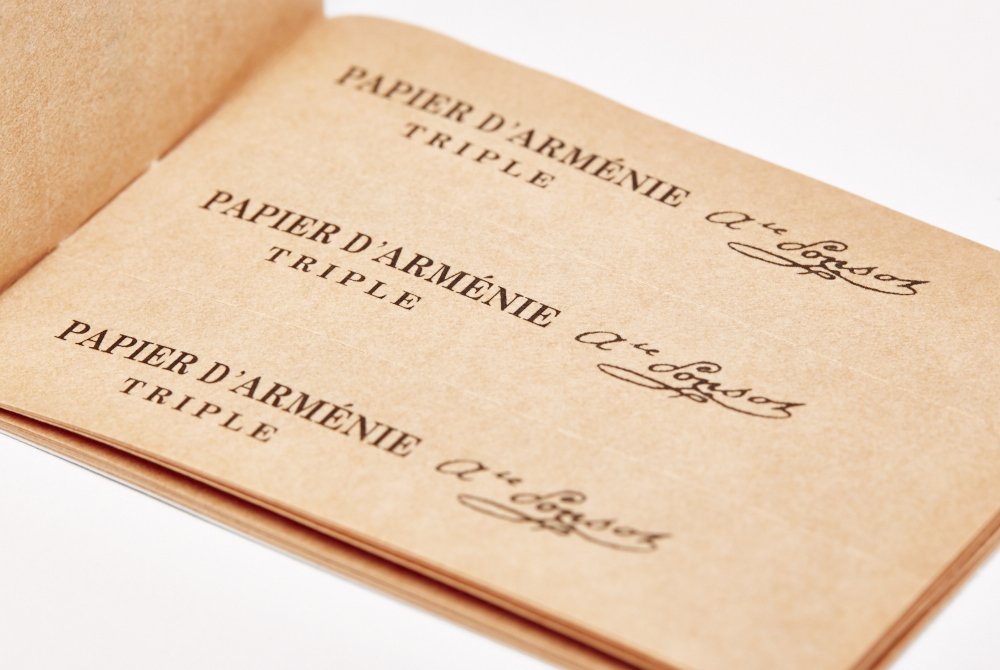 PAPIER D'ARMÉNIE
TRIPLE
Ate Ponsot
PAPIER D'ARMÉNIE
TRIPLE
Ate Ponsot
PAPIER D'ARMÉNIE
TRIPLE
Ate Ponsot